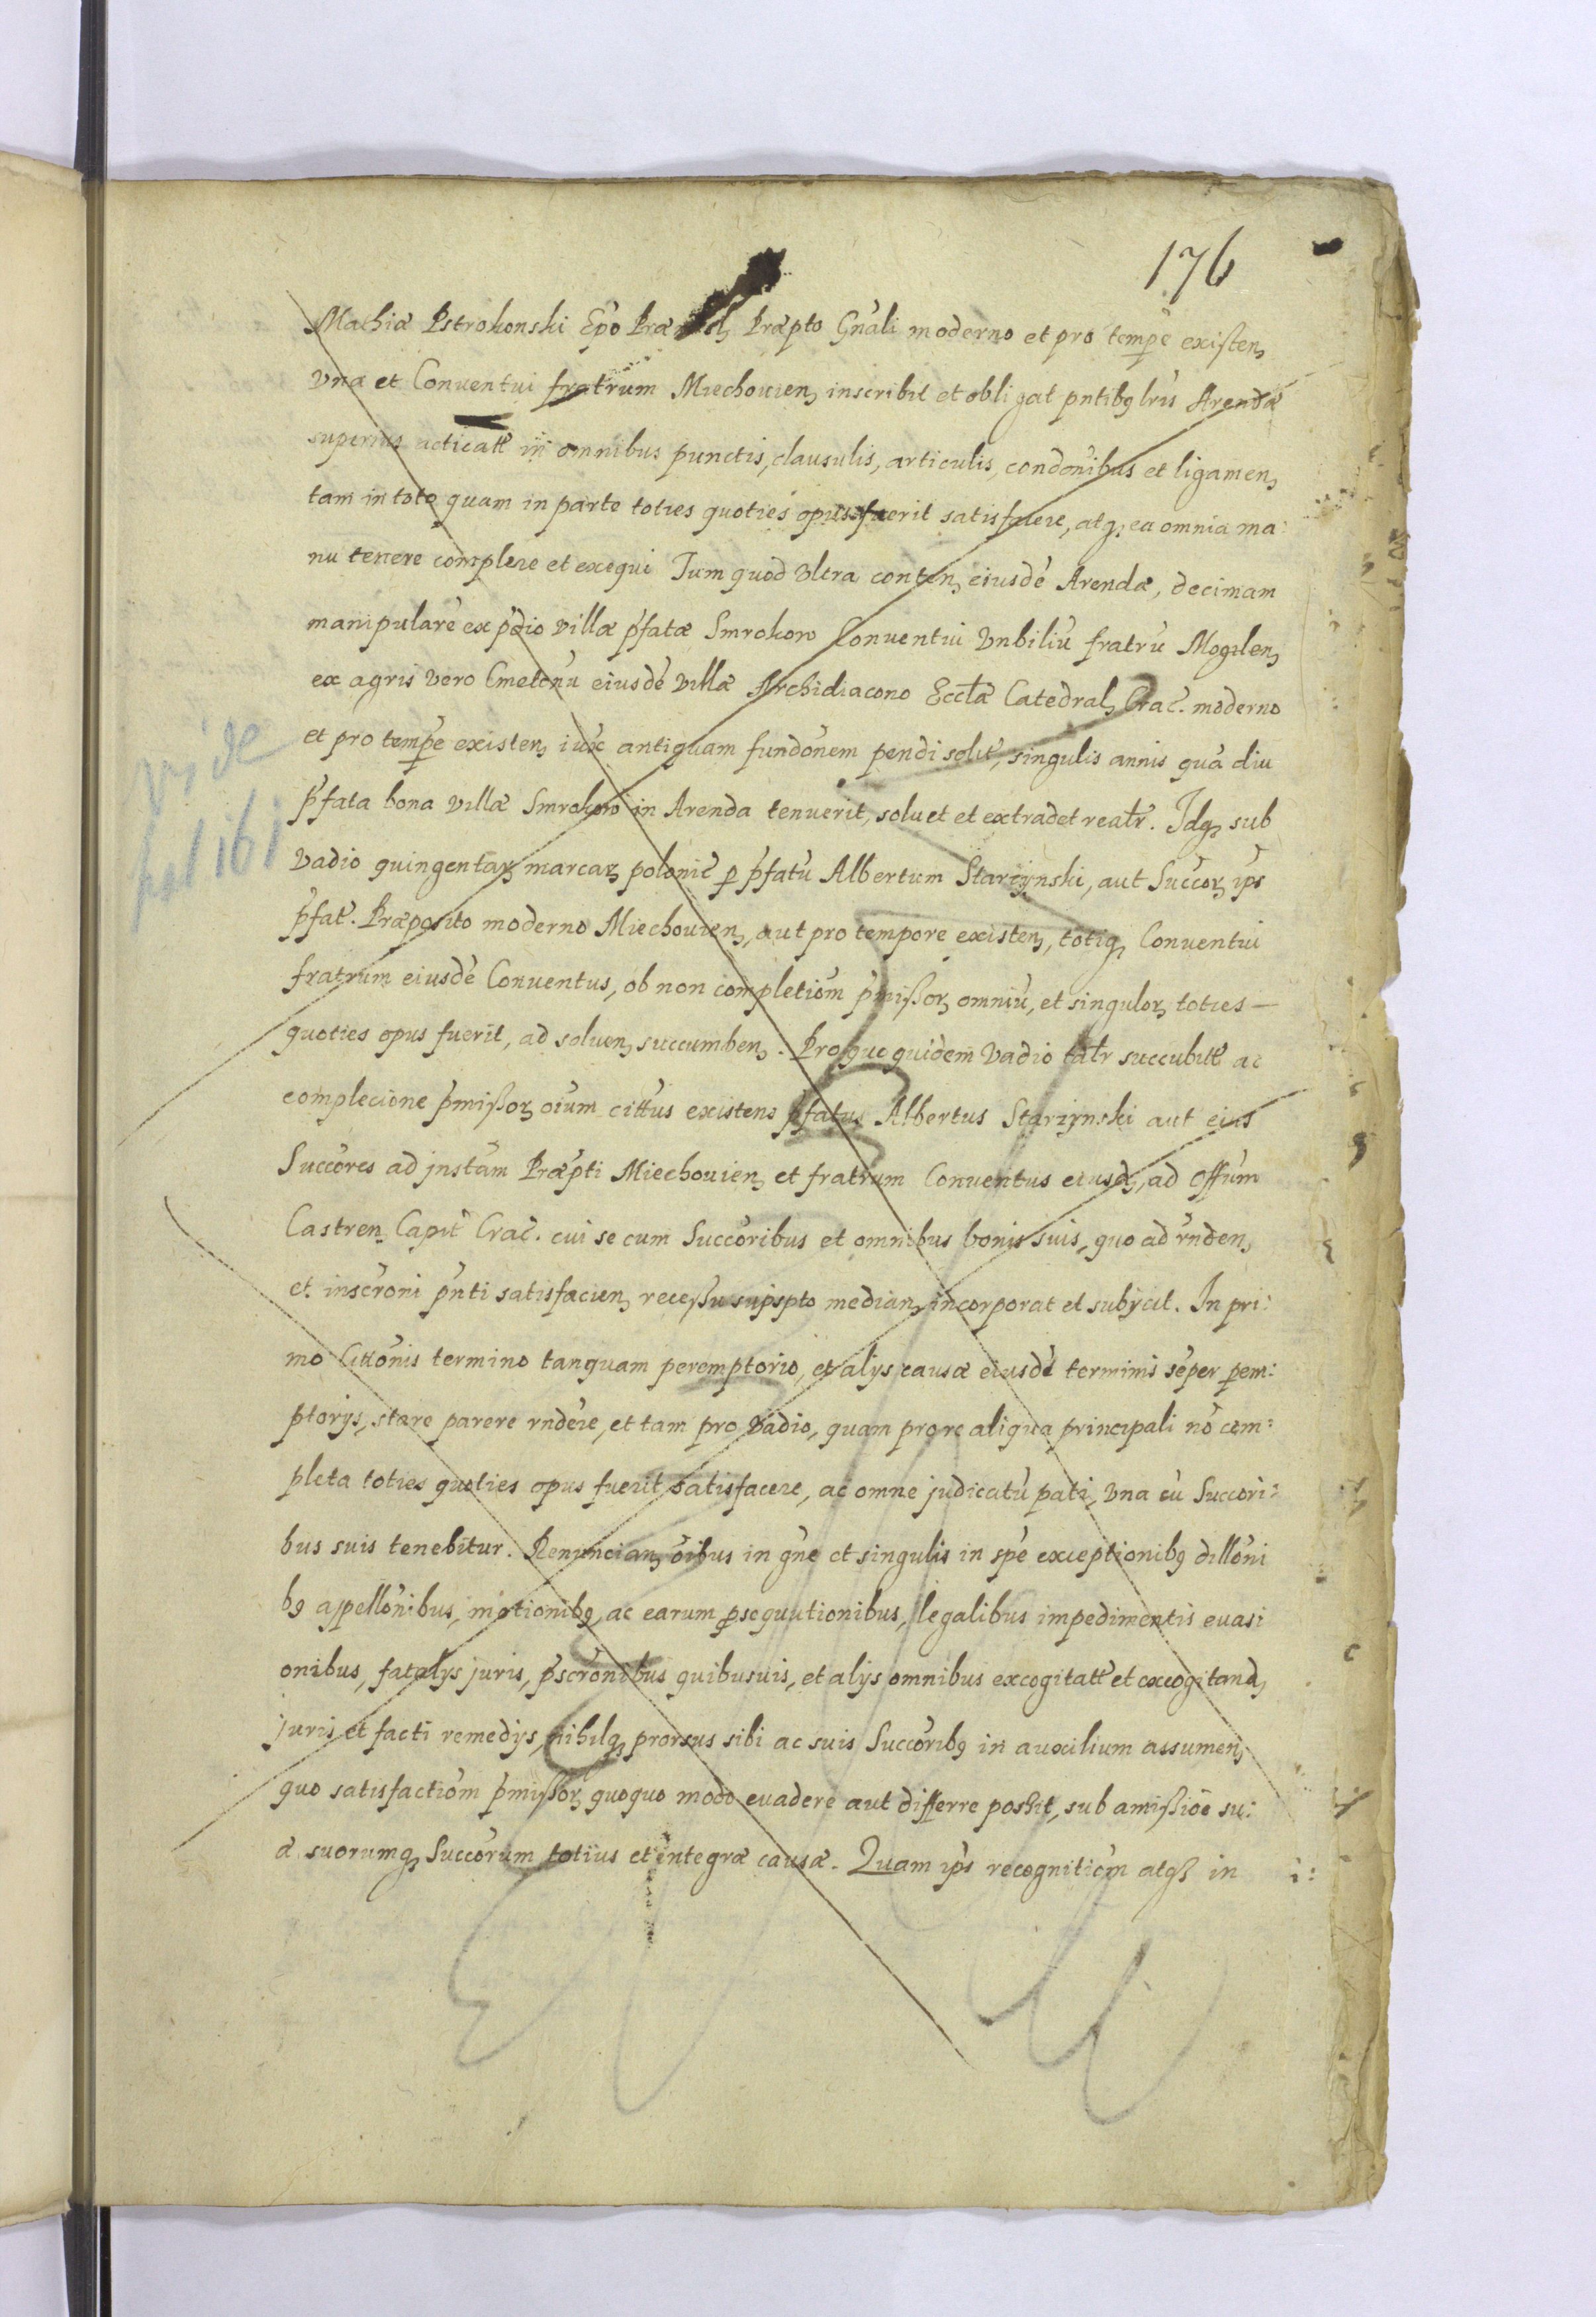 176
Mathiæ Pstrokonski Epō Præm Præpto Gnāli moderno et pro tempē existen,
Vna et Conventui fratrum Miechouien, inscribit et obligat pntibꝫ lrīs Arendæ
superius acticatt in omnibus punctis, clausulis, articulis, condōnibus et ligamen,
tam in toto quam in parte toties quoties opus fuerit satisfacere, atqꝫ ea omnia ma:
nu tenere complere et exequi Tum quod Vltra conten, eiusdē Arendæ, decimam
manipularē ex pdio villæ pfatæ Smrokow Conventui Vnbiliū fratrū Mogilen,
ex agris vero Cmetonū eiusdē villæ Archidiacono Ecclæ Catedral, Crac. moderno
et pro tempe existen, iux antiquam fundōnem pendi solit, singulis annis quā diu
vide
fol 161
pfata bona villæ Smrokow in Arenda tenuerit, soluet et extradet realr. Idqꝫ sub
Vadio quingentaꝝ marcaꝝ polonic p pfatū Albertum Starzynski, aut Succoꝝ ips
pfat. Præposito moderno Miechouien, aut pro tempore existen, totiqꝫ Conventui
fratrum eiusdē Conventus, ob non completiōm pmißoꝝ omniū, et singuloꝝ toties —
quoties opus fuerit, ad soluen, succumben,. Pro quo quidem Vadio talr succubitt ac
complecione pmißoꝝ oium cittus existens pfatus Albertus Starzynski aut eius
Succōres ad jnstām Præpti Miechouien, et fratrum Conventus eiusd, ad Offūm
Castren, Capit Crac. cui se cum Succōribus et omnibus bonis suis, quo ad rnden,
et inscrōni pnti satisfacien, receßu supspto median, incorporat et subijcit. In pri:
mo Cittōnis termino tanquam peremptorio, et alys causæ eiusdē terminis sēper pem:
ptorijs, stare parere rndēre, et tam pro vadio, quam pro re aliqua principali nō com:
pleta toties quoties opus fuerit satisfacere, ac omne judicatū pati, Vna cū Succōri:
bus suis tenebitur. Renuncian, ōibus in gne et singulis in spe exceptionibꝫ dillōni
bꝫ appellōnibus, motionibꝫ, ac earum psequutionibus, legalibus impedimentis euasi
onibus, fatalys juris, pscrōnibus quibusuis, et alijs omnibus excogitatt et excogitand,
juris et facti remedijs, nihilqꝫ prorsus sibi ac suis Succōribꝫ in auxilium assumen,
quo satisfactiōm pmißoꝝ quoquo modo euadere aut differre poßit, sub amißiōe su:
a suorumqꝫ Succōrum totius et integræ causæ. Quam ips recognitiōm atqꝫ in